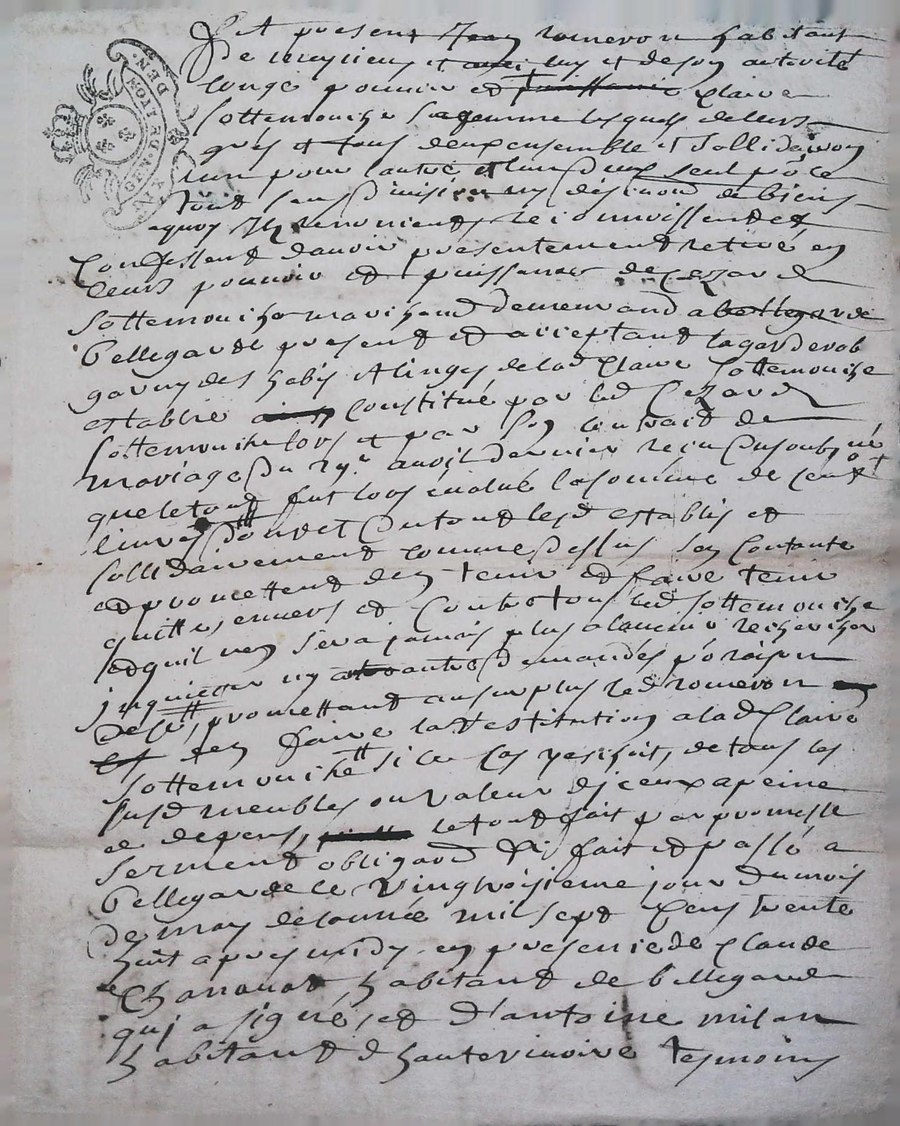 GEN. DE DIJON
Fut present Jean romeron habitant
de et luy et de son autorité
Conge pouvoir et puissance Claire
Sottemouche sa femme lesquels de leurs
grés et tous deux ensemble et sollidairem
lun pour lautre et lun deux seul po le
tout sans division ny de biens
a quoy Ils renoncient reconnoissent et
Confessent davoir presentement retiré en
leurs pouvoir et puissance de Cezard
Sottemouche marchand demeurand a bellegarde
bellegarde present et acceptant la garderob
garny des habis et linges de lad Claire Sottemouche
establie constitué par led Cezard
Sottemouche lors et par son contrait de
mariage du 29e avril dernier reçu du soubsné
que le tout fut lors evalué la somme de cent
livres dont et du tout lesd establis et
sollidairement comme dessus son Contants
et promettent den tenir et faire tenir
quittes envers et Contre tous led Sottemouche
et quil nen sera jamais plus a lavenir rechercher
inquietter ny autre demandés po raison
De ce, promettant au surplus led romeron
est den faire la restitution a lad Claire
Sottemouche si le Cas y eschoit, de tous les
susd meubles ou valeur diceux a peine
de depens, le tout fait par promesse
serment obligaõn &c fait et passé a
bellegarde le vingtroisieme jour du mois
de may de lannée mil sept Cens trente
huit apres midy en presence de Claude
Chanavat habitant de bellegarde
qui a signé, et d'antoine milan
habitant d hauterivoire tesmoins